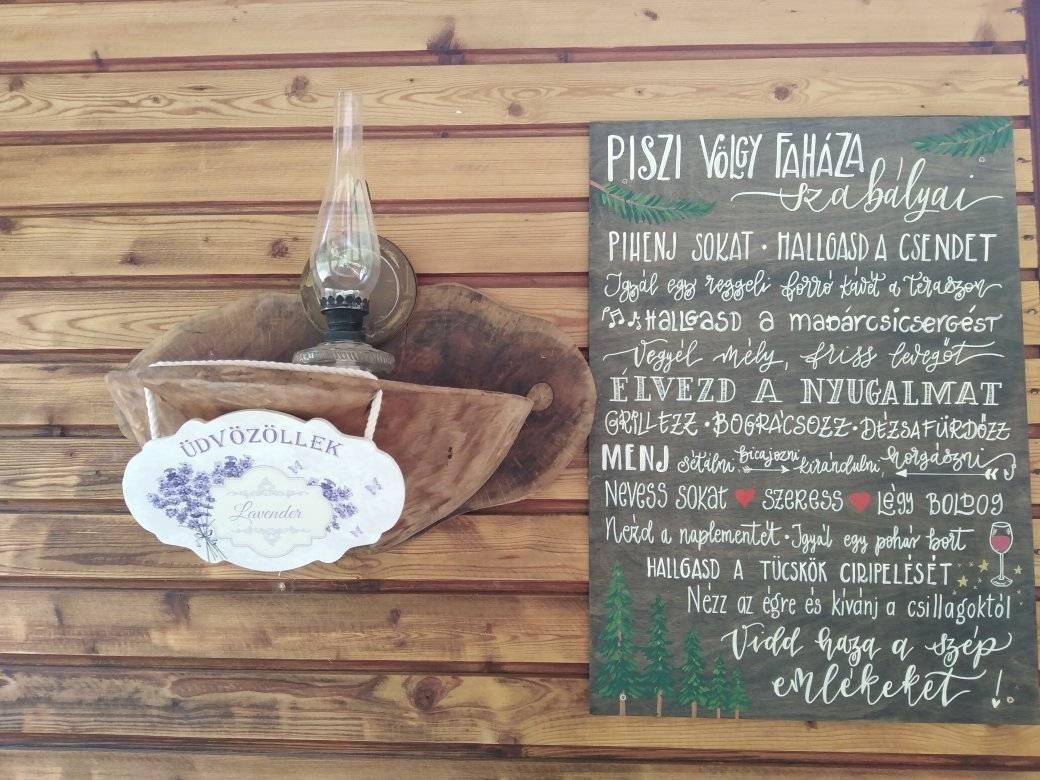 ÜDVÖZÖLLEK
Lavender
PISZI VÖLGY FAHÁZA
szabályai
PIHENJ SOKAT • HALLGASD A CSENDET
Igyál egy reggeli forró kávét a teraszon
HALLGASD a madárcsicsergést
Vegyél mély, friss levegőt
ÉLVEZD A NYUGALMAT
GRILLEZZ • BOGRÁCSOZZ • DÉZSAFÜRDŐZZ
MENJ sétálni, bicajozni, kirándulni, horgászni
Nevess sokat ♥ SZERESS ♥ Légy BOLDOG
Nézd a naplementét • Igyál egy pohár bort
HALLGASD A TÜCSKÖK CIRIPELÉSÉT
Nézz az égre és kívánj a csillagoktól
Vidd haza a szép
emlékeket !